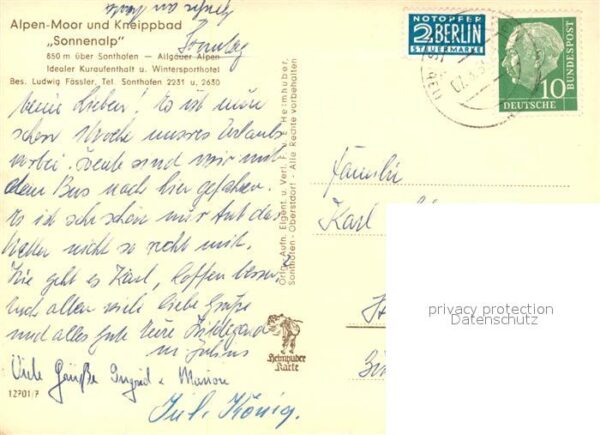 Alpen-Moor und Kneippbad
„Sonnenalp"
850 m über Sonthofen — Allgäuer Alpen
Idealer Kuraufenthalt u. Wintersporthotel
Bes. Ludwig Fässler, Tel. Sonthofen 2231 u. 2630
Sonntag
Meine Lieben! Es ist nun
schon Woche unseres Urlaubs
vorbei. Heute sind wir mit
dem Bus nach hier gefahren.
Es ist sehr schön nur tut das
Wetter nicht so recht mit.
Wie geht es Karl, hoffen besser.
Euch allen viele liebe Grüße
und alles Gute Eure Hildegard
u. Julius
Viele Grüße Ingrid + Marion
Jul. König.
12701/7
Orig.-Aufn. Eigent. u. Verl. F. u. E. Heimhuber,
Sonthofen - Oberstdorf - Alle Rechte vorbehalten
Heimhuber
Karte
NOTOPFER
2 BERLIN
STEUERMARKE
10
DEUTSCHE
BUNDESPOST
Familie
Karl
privacy protection
Datenschutz